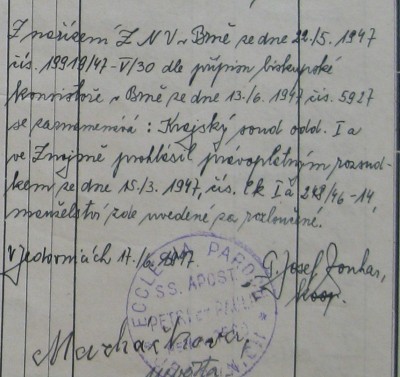 Z nařízení Z N V v Brně ze dne 22./5. 1947
čís. 19919/47-V/30 dle přípisu biskupské
konsistoře v Brně ze dne 13./6. 1947 čís. 5927
se zaznamenává : Krajský soud odd. I a
ve Znojmě prohlásil právoplatným rozsud-
kem ze dne 15./3. 1947, čís. Ck I a 248/46-14,
manželství zde uvedené za rozloučené.
V Jedovnicích 17./6. 1947.
P. Josef Jonhar,
koop.
ECCLESIA PAROCH
S.S. APOST.
PETRI et PAULI
Macháčková